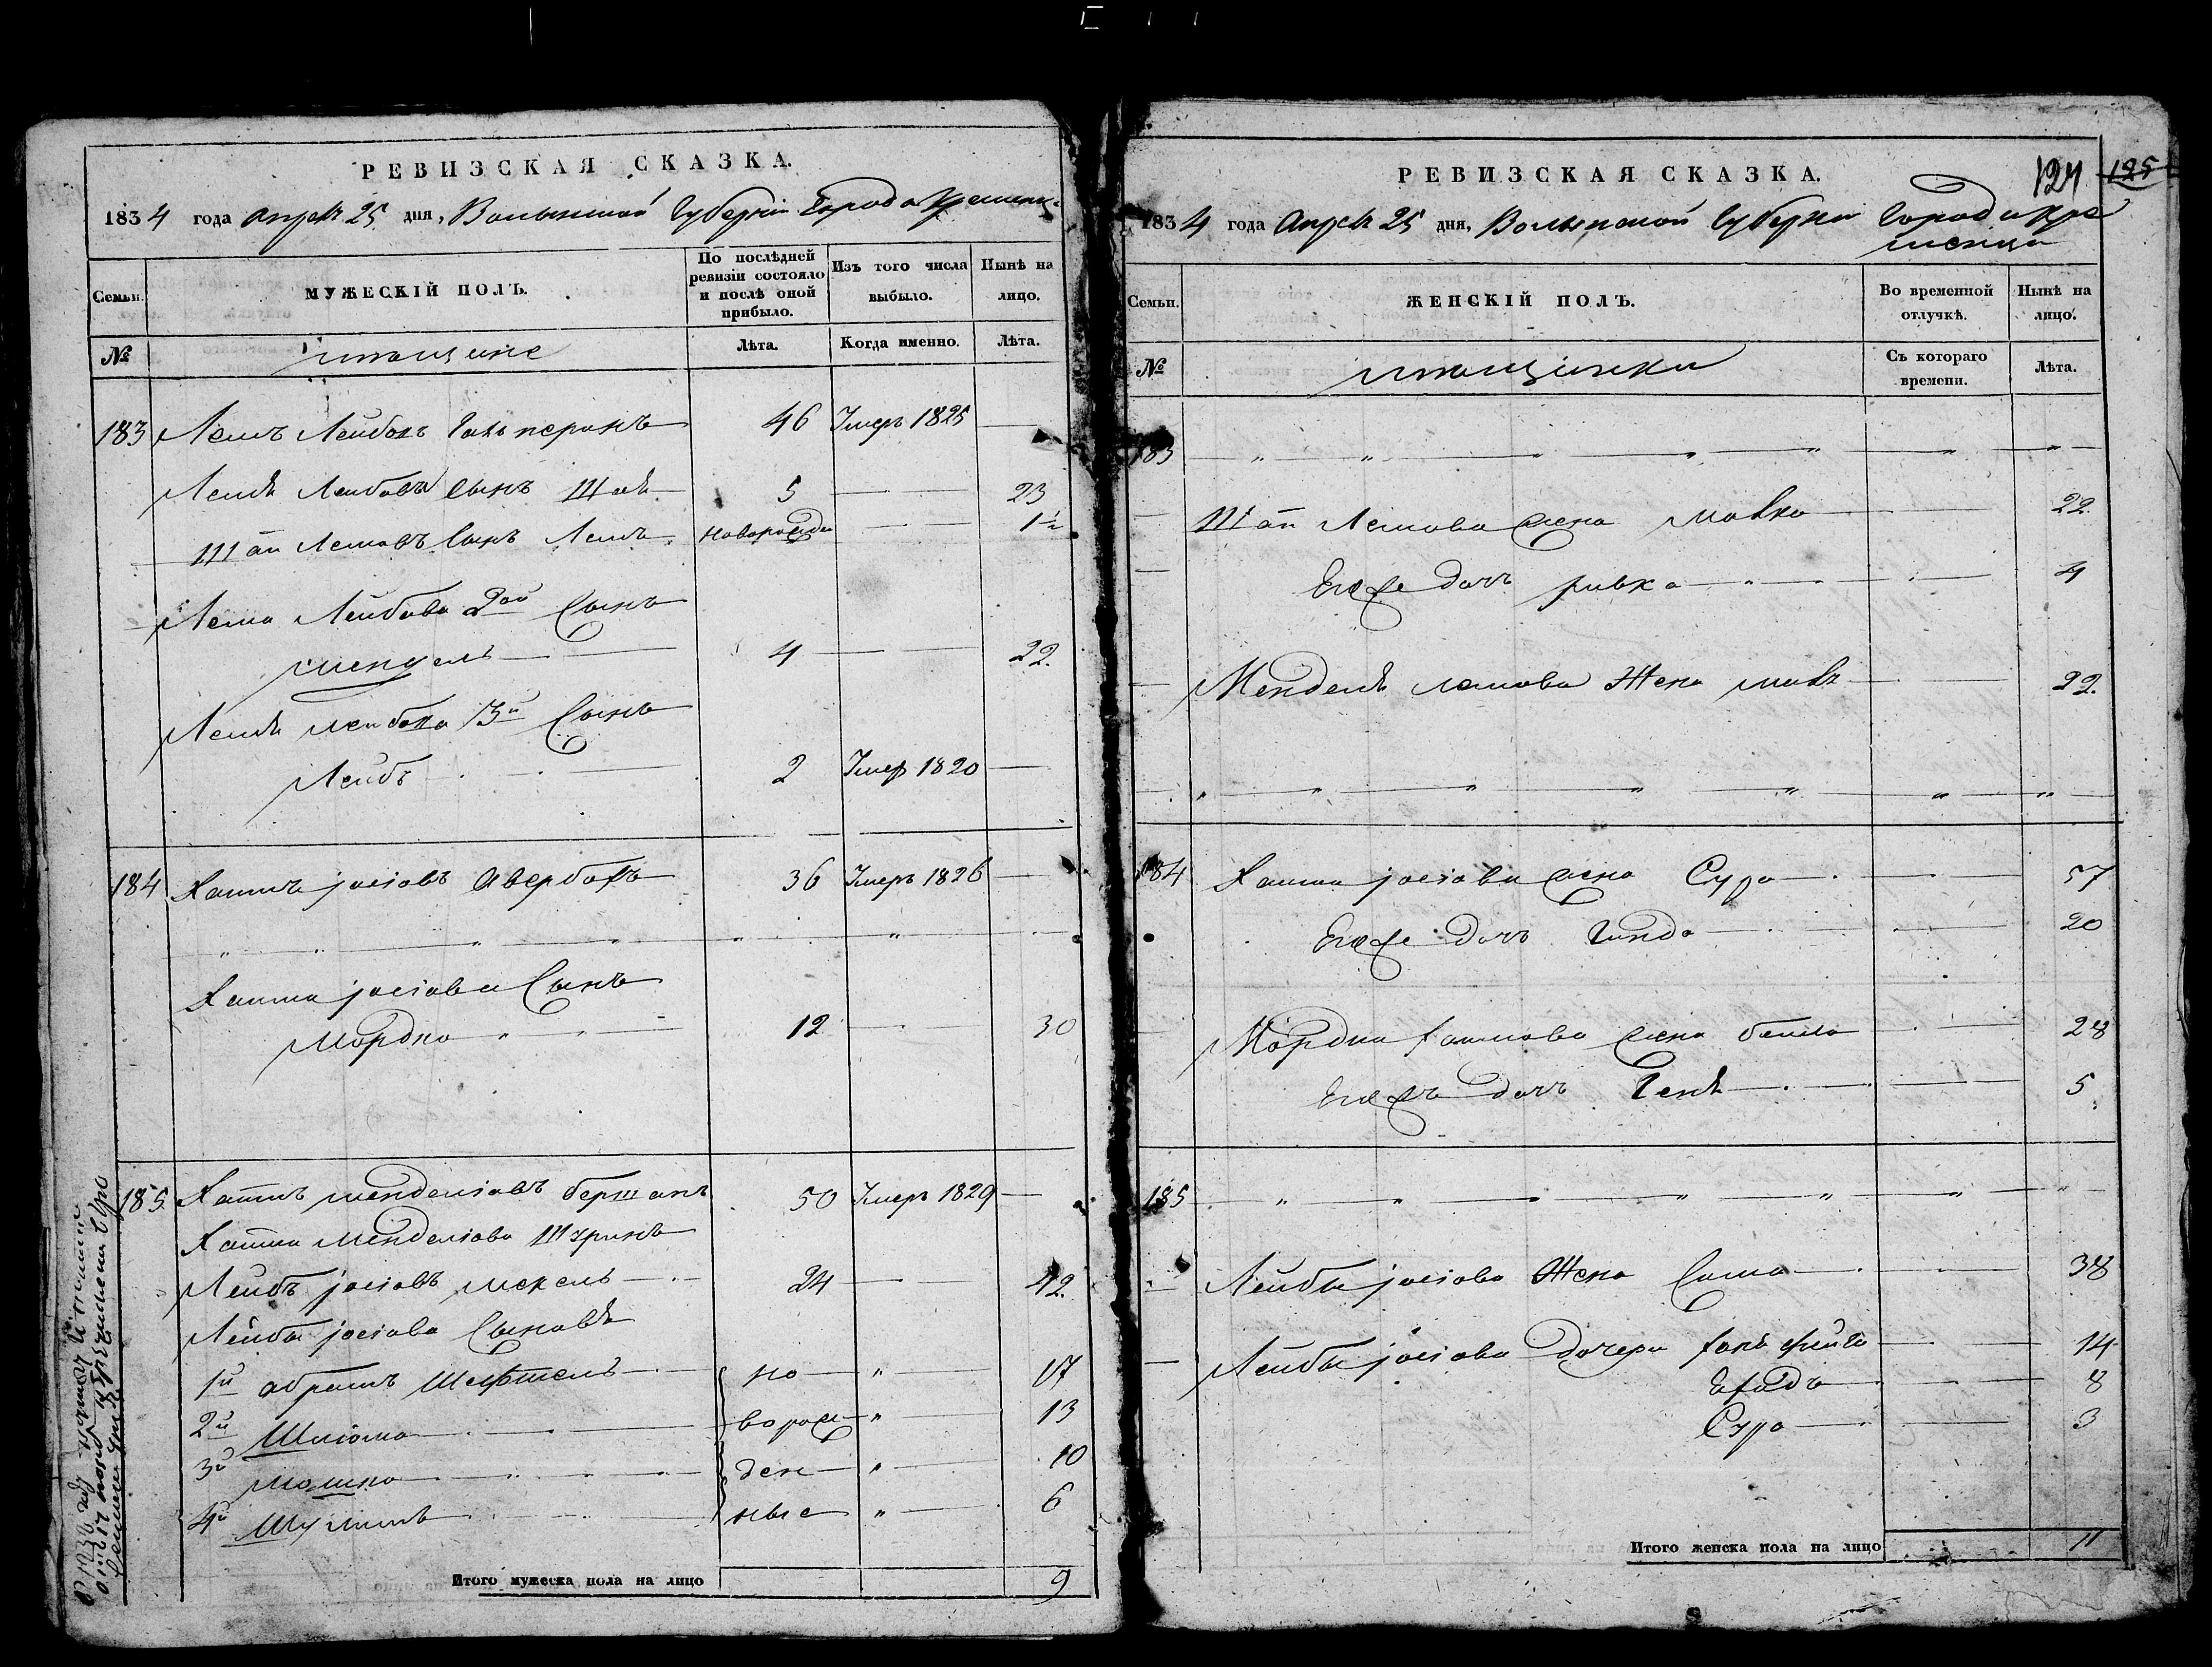 РЕВИЗСКАЯ СКАЗКА.
1834 года Апреля 25 дня, Волынской Губерніи Города Кременца
Семьи.
МУЖЕСКІЙ ПОЛЪ.
По послѣдней ревизіи состояло и послѣ оной прибыло.
Изъ того числа выбыло.
Нынѣ на лицо.
№
мещане
Лѣта.
Когда именно.
Лѣта.
183 Лемъ Лейбовъ Гальперинъ 46 Умеръ 1825 —
Лемъ Лейбовъ Сынъ 5 — 23
Лемовъ Сынъ Лемъ новорожде — 1½
Лема Лейбова 2ой Сынъ
Мендель 4 — 22.
Лема Лейбова 3й Сынъ
Лейбъ 2 Умер 1820 —
184 Хаимъ Іосіовъ Авербахъ 36 Умеръ 1826 —
" " " " " "
Хаима Іосіова Сынъ
Мордко 12 — 30
185 Хаимъ Менделіовъ 50 Умеръ 1829 —
Хаима Менделіова Шуринъ
Лейбъ Іосіовъ 24 — 42.
Лейбы Іосіова Сыновья
1й Абрамъ но " 17
2й Шліома ворож " 13
3й Мошко ден " 10
4й ные " 6
Итого мужеска пола на лицо 9
РЕВИЗСКАЯ СКАЗКА.
124 125
1834 года Апреля 25 дня, Волынской Губерніи Города Кре
менца
Семьи.
ЖЕНСКІЙ ПОЛЪ.
Во временной отлучкѣ.
Нынѣ на лицо.
№
мещанки
Съ котораго времени.
Лѣта.
183 " " " " " " "
Лемова жена Малка — 22.
Егоже дочь Ривка — 4
Менделя Лемова Жена — 22.
" " " " " " "
184 Хаима Іосіова жена Сура — 57
Егоже дочь Гинда — 20
Мордка Хаимова жена Бейла — 28
Егожъ дочь Геня — 5
185 " " " " " " "
Лейбы Іосіова Жена — 38
Лейбы Іосіова Дочери — 14
— 8
Сура — 3
Итого женска пола на лицо 11